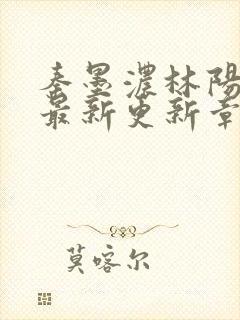 秦墨濃林陽
最新更新章
莫喀尔